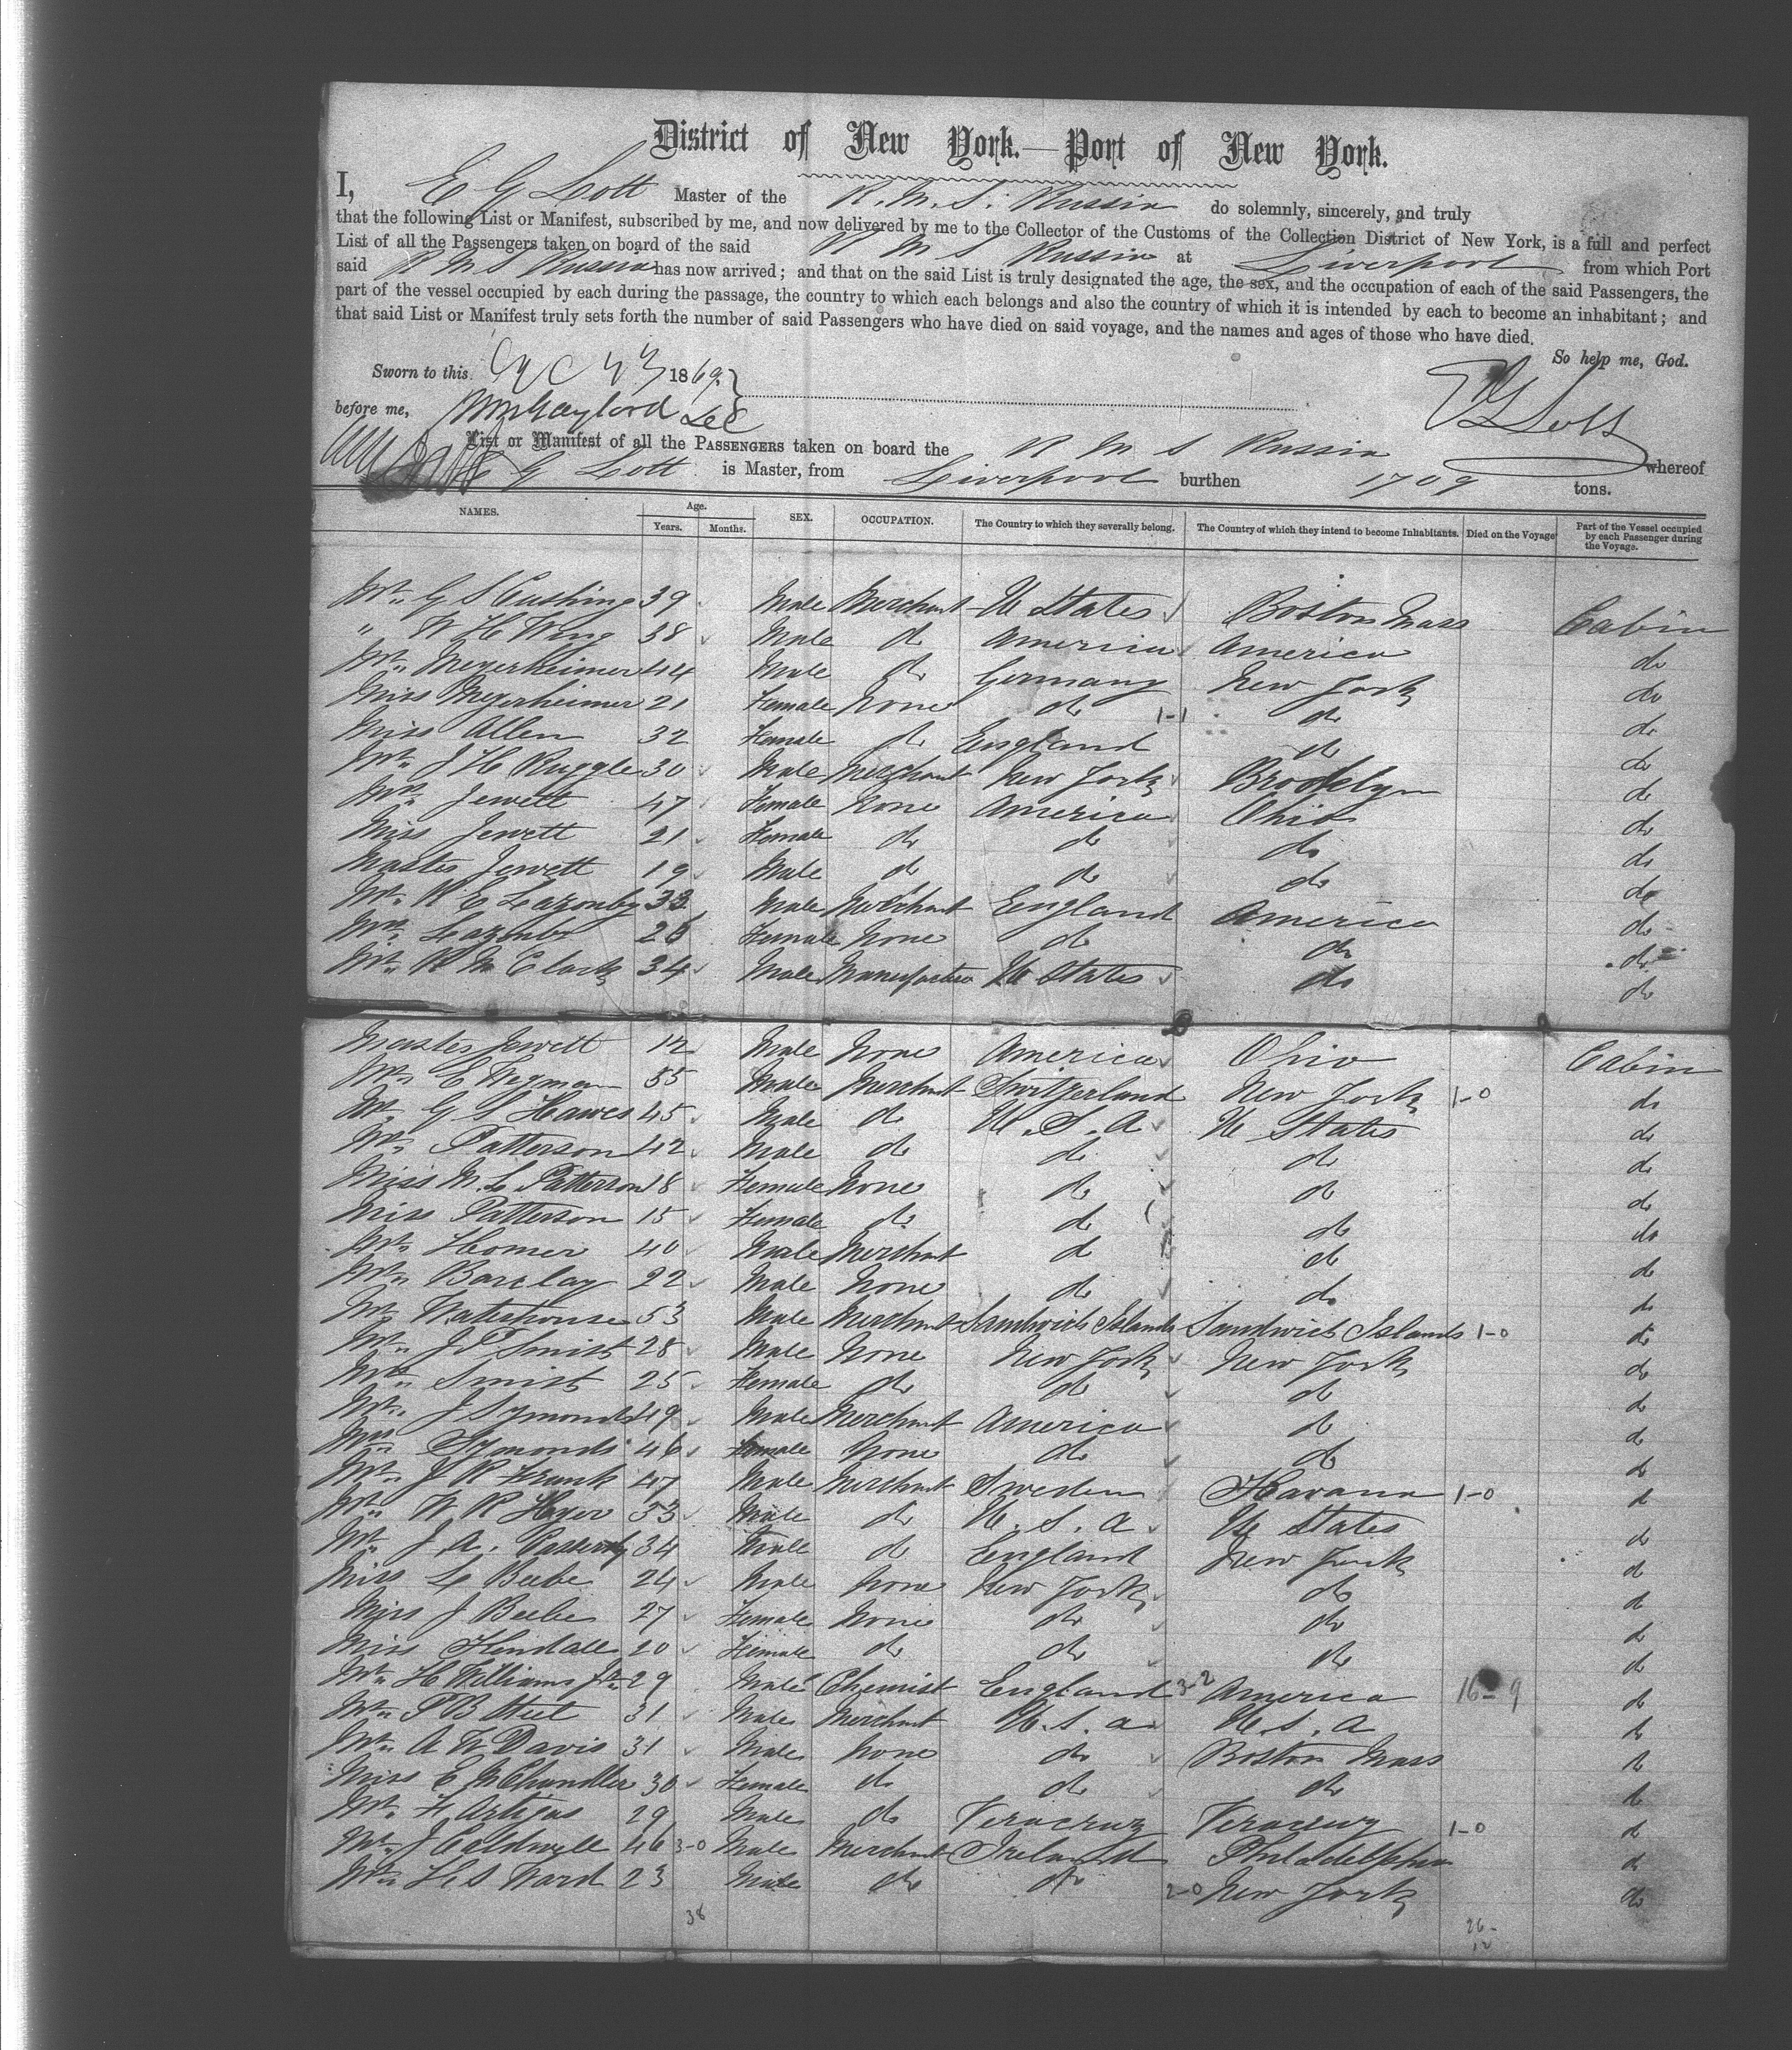 District of New York.—Port of New York.
I, E G Lott Master of the R. M. S. Russia do solemnly, sincerely, and truly
that the following List or Manifest, subscribed by me, and now delivered by me to the Collector of the Customs of the Collection District of New York, is a full and perfect
List of all the Passengers taken on board of the said R M S Russia at Liverpool from which Port
said R M S Russia has now arrived; and that on the said List is truly designated the age, the sex, and the occupation of each of the said Passengers, the
part of the vessel occupied by each during the passage, the country to which each belongs and also the country of which it is intended by each to become an inhabitant; and
that said List or Manifest truly sets forth the number of said Passengers who have died on said voyage, and the names and ages of those who have died.
So help me, God.
Sworn to this 1869.
E G Lott
before me,
List or Manifest of all the PASSENGERS taken on board the R M S Russia whereof
E G Lott is Master, from Liverpool burthen 1709 tons.
NAMES. Age. Years. Months. SEX. OCCUPATION. The Country to which they severally belong. The Country of which they intend to become Inhabitants. Died on the Voyage Part of the Vessel occupied by each Passenger during the Voyage.
Mr. G S Cushing 39 Male Merchant U States Boston Mass Cabin
" W H Wing 38 Male do America America do
Mr. Meyerheimer 44 Male do Germany New York do
Miss Meyerheimer 21 Female None do 1-1 do do
Miss Allen 32 Female do England do do
Mr. J H Ruggles 30 Male Merchant New York Brooklyn do
Mrs. Jewett 47 Female None America Ohio do
Miss Jewett 21 Female do do do do
Master Jewett 19 Male do do do do
Mr. R E Lazonby 33 Male Merchant England America do
Mrs. Lazonby 26 Female None do do do
Mr. R M Clark 34 Male Manufacturer U States do do
Master Jewett 12 Male None America Ohio Cabin
Mr. E Wegman 55 Male Merchant Switzerland New York 1-0 do
Mr. G S Hawes 45 Male do U. S. A U States do
Mr. Patterson 42 Male do do do do
Miss M. L Patterson 18 Female None do do do
Miss Patterson 15 Female do do do do
Mr. Homer 40 Male Merchant do do do
Mr. Barclay 22 Male None do do do
Mr. Waterhouse 53 Male Merchant Sandwich Islands Sandwich Islands 1-0 do
Mr. J P Smith 28 Male None New York New York do
Mrs. Smith 25 Female do do do do
Mr. J Symonds 49 Male Merchant America do do
Mrs. Symonds 46 Female None do do do
Mr. J R Frank 47 Male Merchant Sweden Havana 1-0 do
Mr. W R Hoyer 33 Male do U. S. A U States do
Mr. J A. 34 Male do England New York do
Miss L Beebe 24 Male None New York do do
Miss J Beebe 27 Female None do do do
Miss Kendall 20 Female do do do do
Mr. H Williams Jr. 29 Male Chemist England 3-2 America 16-9 do
Mr. P B 31 Male Merchant U. S. a U. S. A do
Mr. A W Davis 31 Male None do Boston Mass do
Miss E M Chandler 30 Female do do do do
Mr. F. Artigas 29 Male do Veracruz Veracruz 1-0 do
Mr. J Caldwell 46 3-0 Male Merchant Ireland Philadelphia do
Mr. H S Ward 23 Male do do 2-0 New York do
38 26-
12